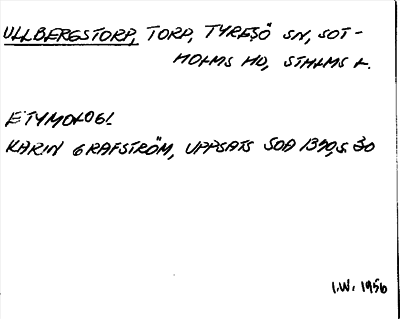 ULLBERGSTORP, TORP, TYRESÖ SN, SOT-
HOLMS HD, STHLMS L.
ETYMOLOGI
KARIN GRAFSTRÖM, UPPSATS SOA 1390, S. 30
I.W. 1956